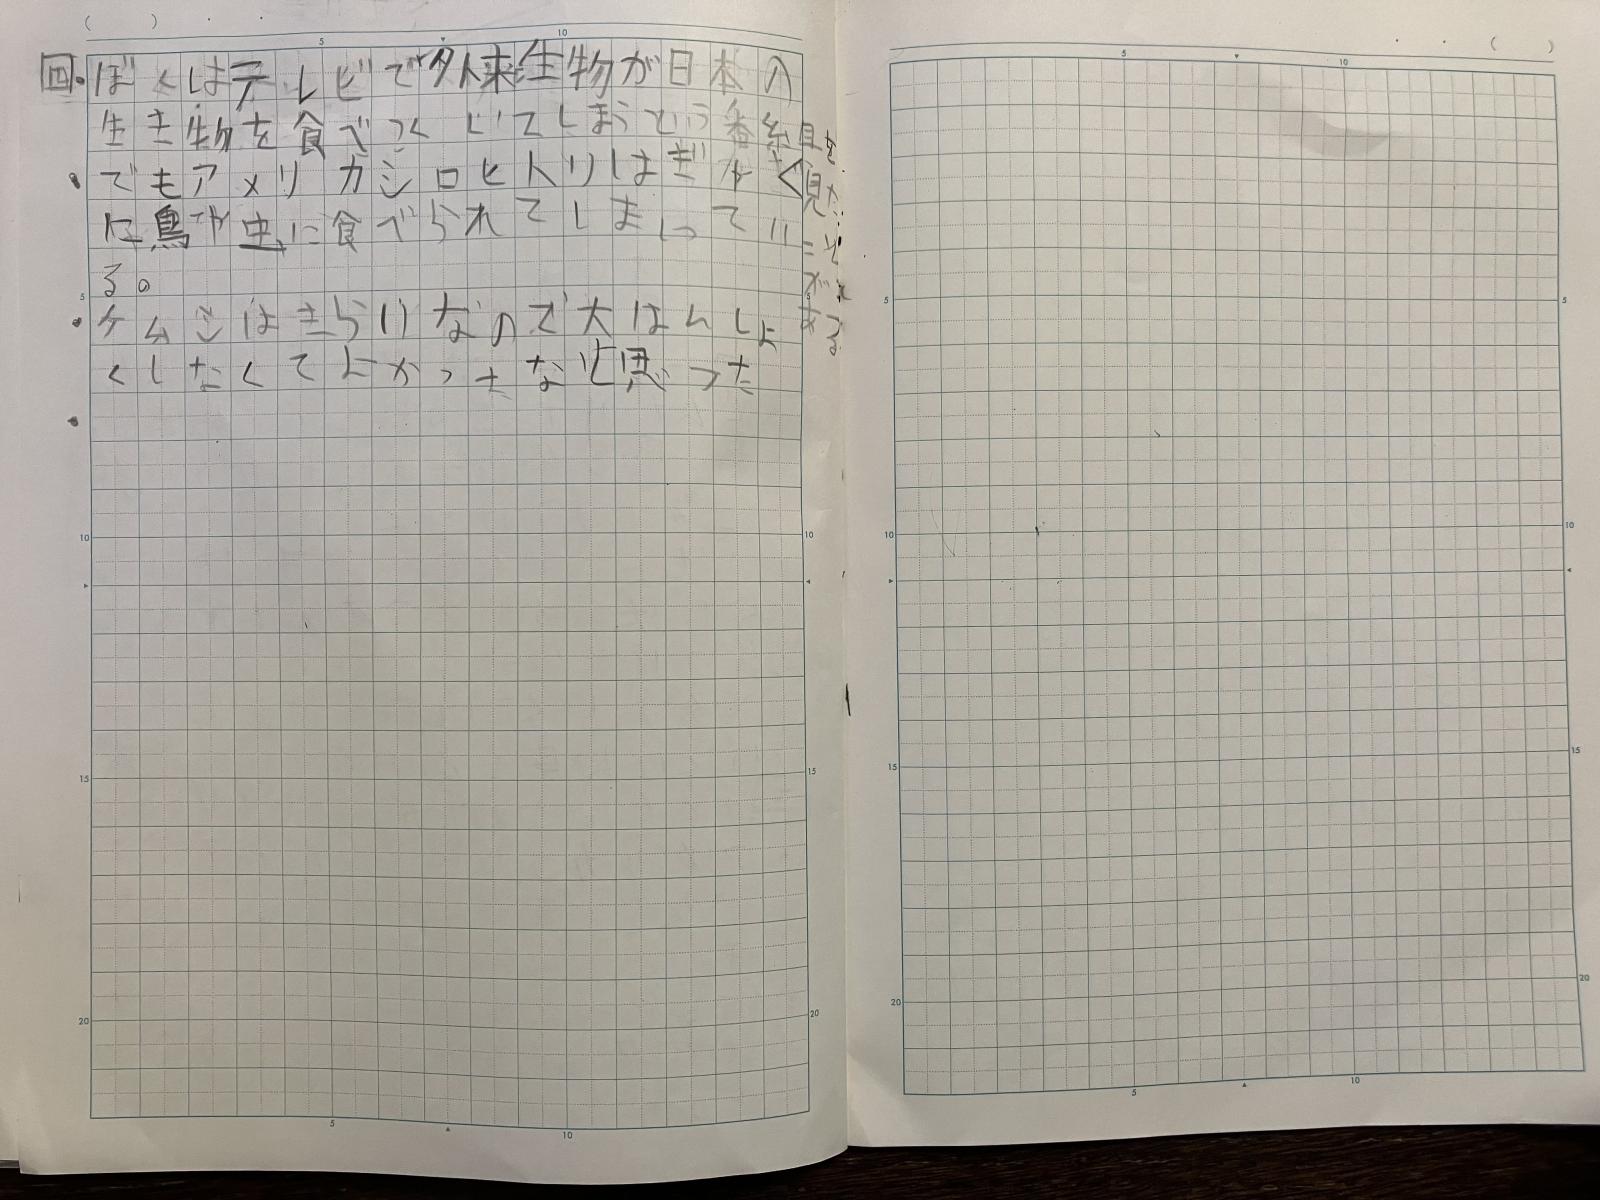 四.ぼくはテレビで外来生物が日本の
生き物を食べつくしてしまうという番組を見たことがある
でもアメリカシロヒトリはぎゃく
に鳥や虫に食べられてしまってい
る。
ケムシはきらいなので大はんしょ
くしなくてよかったなと思った